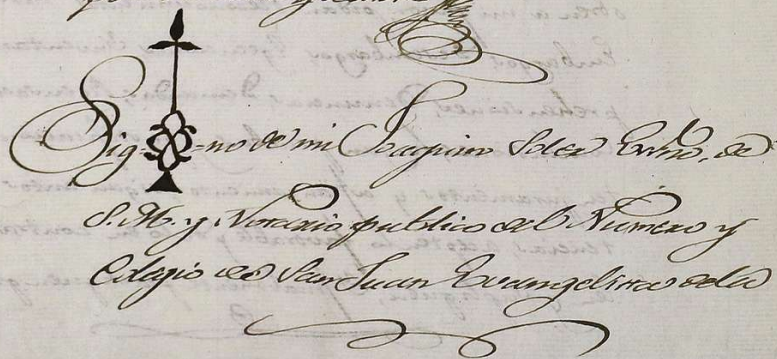 Sig-no de mi Joaquin Soler Essno. de
S. M. y Notario publico del Número y
Colegio de San Juan Evangelista de la